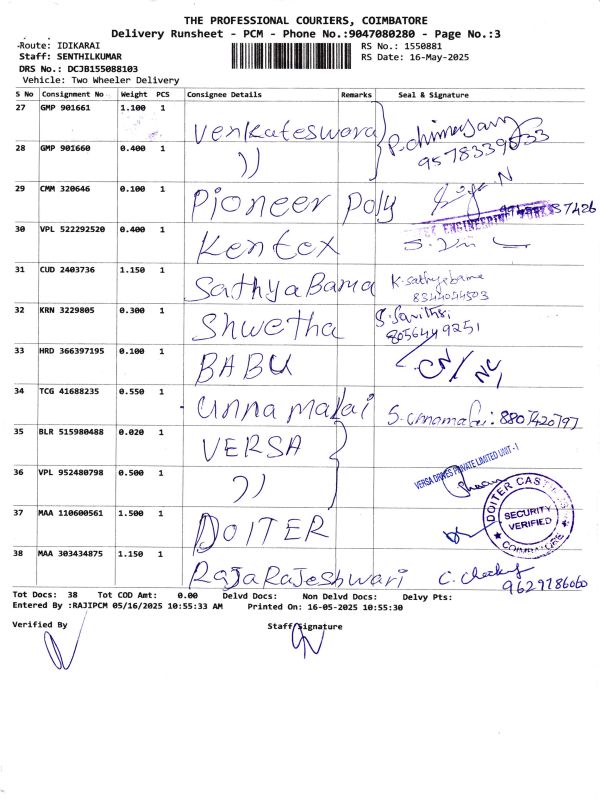 THE PROFESSIONAL COURIERS, COIMBATORE
Delivery Runsheet - PCM - Phone No.:9047080280 - Page No.:3
Route: IDIKARAI RS No.: 1550881
Staff: SENTHILKUMAR RS Date: 16-May-2025
DRS No.: DCJB155088103
Vehicle: Two Wheeler Delivery
S No Consignment No Weight PCS Consignee Details Remarks Seal & Signature
27 GMP 901661 1.100 1 Venkateswora
28 GMP 901660 0.400 1 ))
29 CMM 320646 0.100 1 Pioneer Poly
30 VPL 522292520 0.400 1 Kentex
31 CUD 2403736 1.150 1 SathyaBama K. Sathyabama
8344044503
32 KRN 3229805 0.300 1 Shwetha S. Savithri
8056449251
33 HRD 366397195 0.100 1 BABU CN/NC
34 TCG 41688235 0.550 1 unnamalai 8807420797
35 BLR 515980488 0.020 1 VERSA
VERSA DRIVES PRIVATE LIMITED UNIT-1
36 VPL 952480798 0.500 1 ))
37 MAA 110600561 1.500 1 DOITER
SECURITY
VERIFIED
COIMBATORE
38 MAA 303434875 1.150 1 RajaRajeshwari
9629786060
Tot Docs: 38 Tot COD Amt: 0.00 Delvd Docs: Non Delvd Docs: Delvy Pts:
Entered By :RAJIPCM 05/16/2025 10:55:33 AM Printed On: 16-05-2025 10:55:30
Verified By Staff Signature